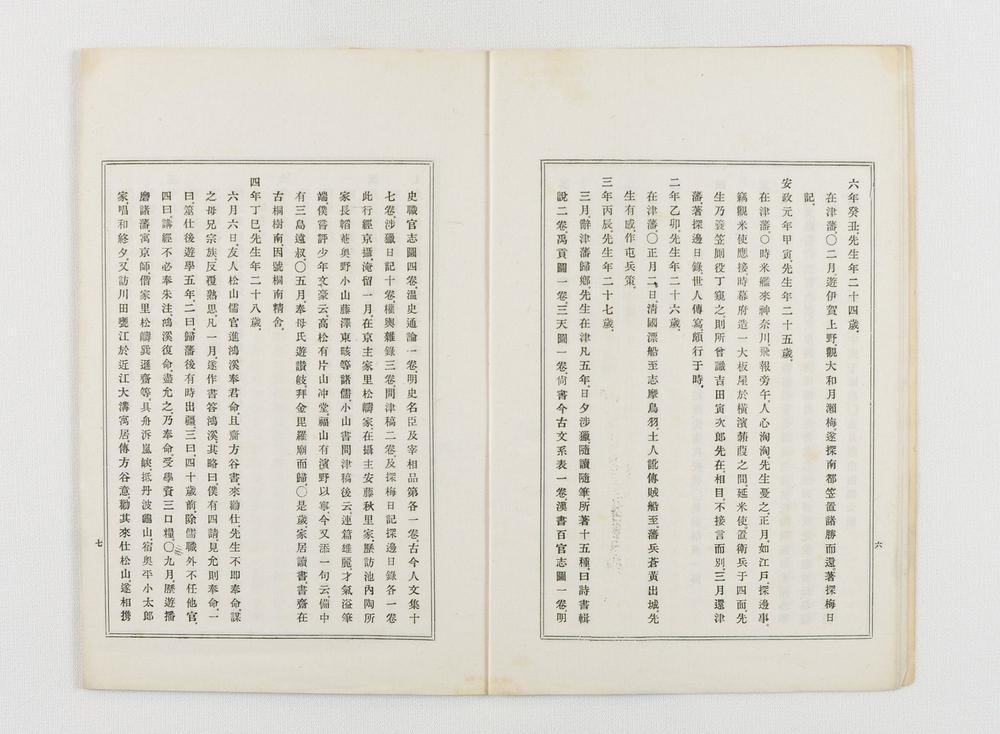 六年癸丑。先生年二十四歲。
在津藩〇二月遊伊賀上野觀大和月瀨梅遂探南都笠置諸勝而還。著探梅日
記。
安政元年甲寅。先生年二十五歲。
在津藩〇時米艦來神奈川飛報旁午。人心洶洶。先生憂之。正月。如江戶。探邊事。
竊觀米使應接。時幕府造一大板屋於橫濱葭葭之間。延米使。置衛兵于四面。先
生乃蓑笠厠役丁窺之。則所曾識吉田寅次郎先在。相目。不接言而別。三月還津
藩。著探邊日錄。世人傳寫。頗行于時。
二年乙卯。先生年二十六歲。
在津藩〇正月二日淸國漂船至志摩鳥羽。土人訛傳賊船至。藩兵蒼黃出城。先
生有感作屯兵策。
三年丙辰先生年二十七歲。
三月。辭津藩歸鄉。先生在津凡五年。日夕涉獵。隨讀隨筆。所著十五種。曰詩書輯
說二卷。禹貢圖一卷。三天圖一卷。尙書今古文系表一卷。漢書百官志圖一卷。明
六
史職官志圖四卷。溫史通論一卷。明史名臣及宰相品第各一卷。古今人文集十
七卷。涉獵日記十卷。權輿雜錄三卷。問津稿二卷。及探梅日記探邊日錄各一卷
此行經京攝。淹留一月。在京主家里松嶹家。在攝主安藤秋里家。歷訪池內陶所
家長韜菴奧野小山藤澤東畡等諸儒。小山書問津稿後云。連篇雄麗。才氣溢筆
端。僕嘗評少年文豪云。高松有片山冲堂。福山有濱野以寧。今又添一句云。備中
有三島遠叔〇五月。奉母氏遊讚岐。拜金毘羅廟而歸〇是歲。家居讀書。書齋在
古桐樹南。因號桐南精舍。
四年丁巳。先生年二十八歲。
六月六日。友人松山儒官進鴻溪奉君命。且齎方谷書。來勸仕。先生不卽奉命。謀
之母兄宗族。反覆熟思。凡一月。遂作書答鴻溪。其略曰。僕有四請。見允則奉命。一
曰。筮仕後遊學五年。二曰。歸藩後有時出疆。三曰。四十歲前。除儒職外不任他官。
四曰。講經不必奉朱注。鴻溪復命。盡允之。乃奉命。受學資三口糧。〇九月。歷遊播
磨諸藩。寓京師。偕家里松嶹巽遜齋等。具舟泝嵐峽抵丹波龜山。宿奧平小太郎
家。唱和終夕。又訪川田甕江於近江大溝寓居。傳方谷意。勸其來仕松山。遂相携
七